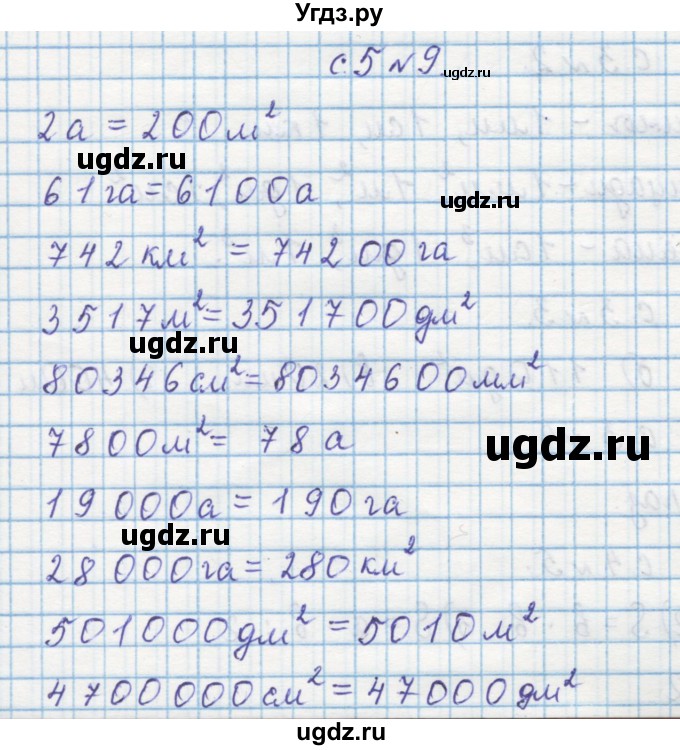 Угдз.ру
с.5 №9
ugdz.ru
2а = 200м²
ugdz.ru
61га = 6100а
742 км² = 74200 га
3517м² = 351700дм²
ugdz.ru
80346 см² = 8034600мм²
7800м² = 78 а
ugdz.ru
19 000а = 190 га
ugdz.ru
28 000га = 280 км²
501000дм² = 5010 м²
4700000см² = 47000 дм²